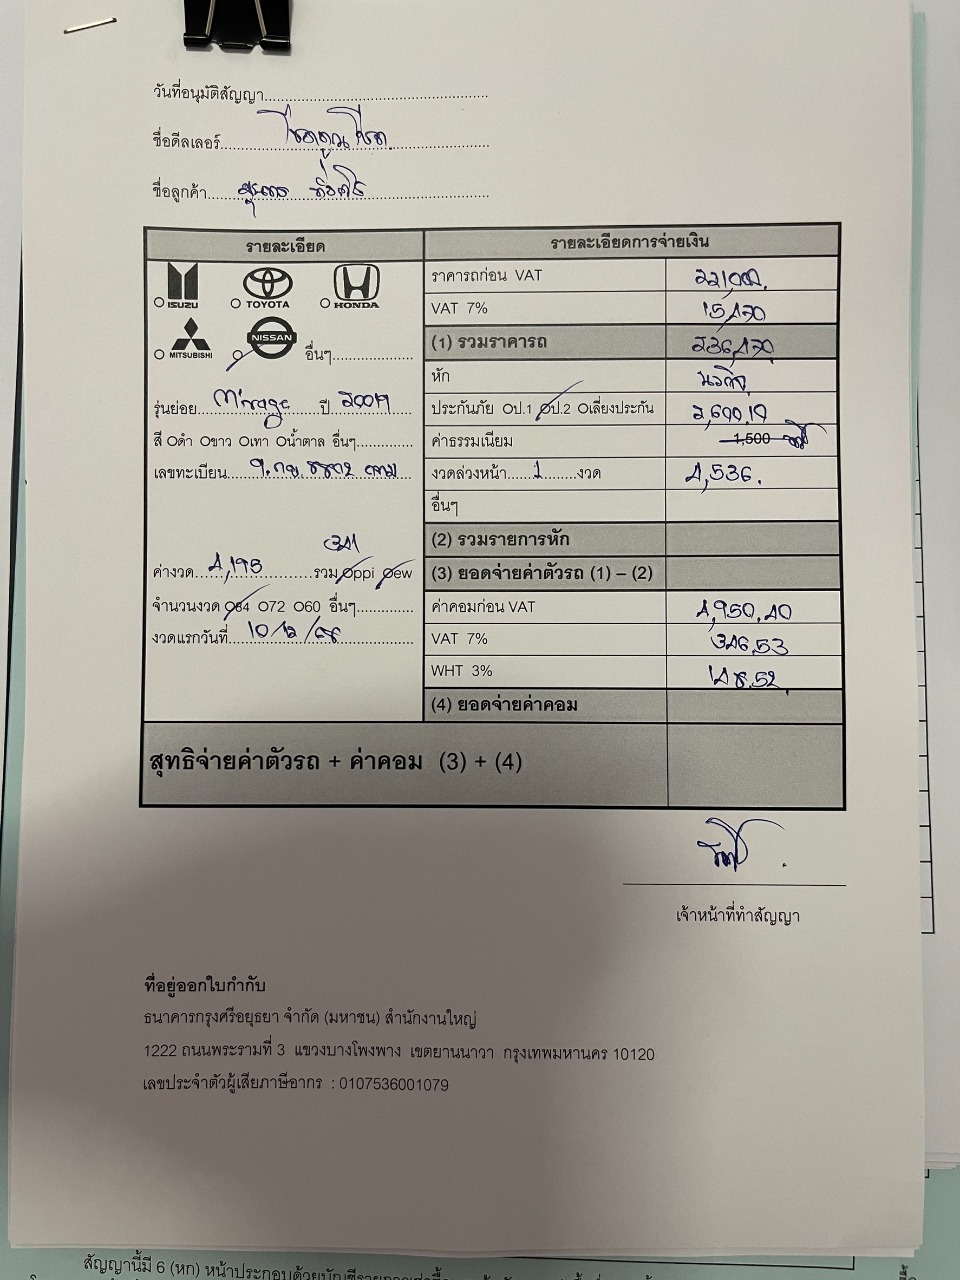 วันที่อนุมัติสัญญา
ชื่อดีลเลอร์ โชคคูณโชค
ชื่อลูกค้า
รายละเอียด
รายละเอียดการจ่ายเงิน
ISUZU TOYOTA HONDA
MITSUBISHI NISSAN อื่นๆ
รุ่นย่อย Mirage ปี
สี ดำ ขาว เทา น้ำตาล อื่นๆ
เลขทะเบียน
ค่างวด 4,195 รวม ppi ew
341
จำนวนงวด 84 72 60 อื่นๆ
งวดแรกวันที่ 10/12/68
ราคารถก่อน VAT 221,000.
VAT 7% 15,470
(1) รวมราคารถ 236,470
หัก
ประกันภัย ป.1 ป.2 เลี่ยงประกัน 2,600.10
ค่าธรรมเนียม 1,500
งวดล่วงหน้า 1 งวด 4,536.
อื่นๆ
(2) รวมรายการหัก
(3) ยอดจ่ายค่าตัวรถ (1) – (2)
ค่าคอมก่อน VAT 4,950.40
VAT 7% 346.53
WHT 3% 148.52
(4) ยอดจ่ายค่าคอม
สุทธิจ่ายค่าตัวรถ + ค่าคอม (3) + (4)
เจ้าหน้าที่ทำสัญญา
ที่อยู่ออกใบกำกับ
ธนาคารกรุงศรีอยุธยา จำกัด (มหาชน) สำนักงานใหญ่
1222 ถนนพระรามที่ 3 แขวงบางโพงพาง เขตยานนาวา กรุงเทพมหานคร 10120
เลขประจำตัวผู้เสียภาษีอากร : 0107536001079
สัญญานี้มี 6 (หก) หน้าประกอบด้วย